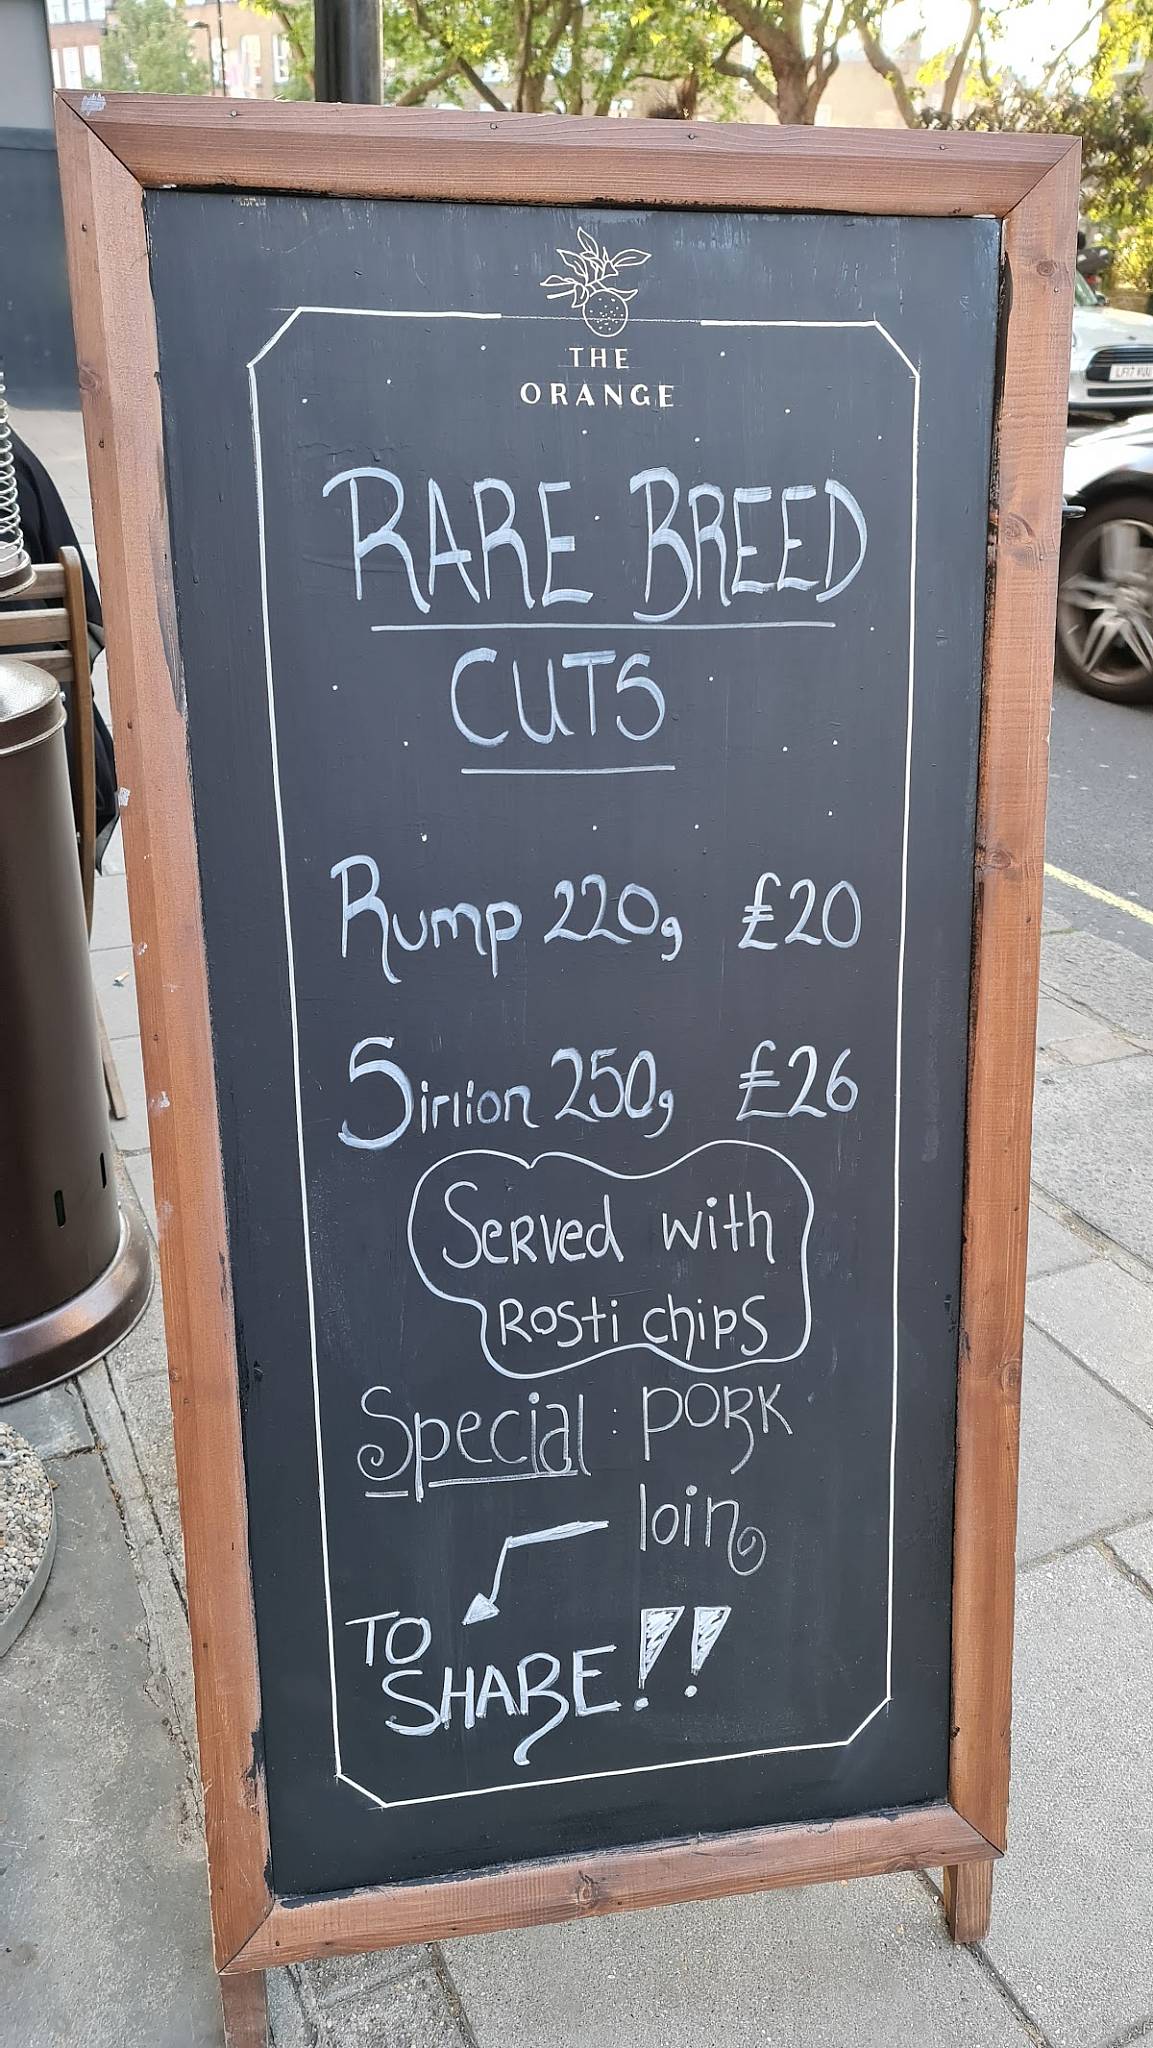 THE
ORANGE
RARE BREED
CUTS
Rump 220g £20
Sirlion 250g £26
Served with
Rosti chips
Special: pork
loin
TO
SHARE!!
LF17